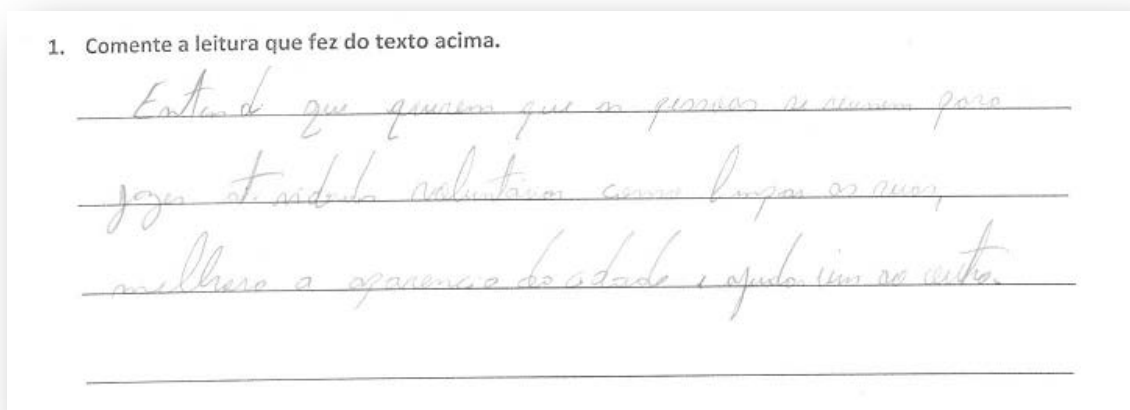 1. Comente a leitura que fez do texto acima.
Entend que querem que as pessoas se reunem para
fazer atividades voluntarias como limpar as ruas,
melhora a aparencia da cidade e ajudar um ao outro.